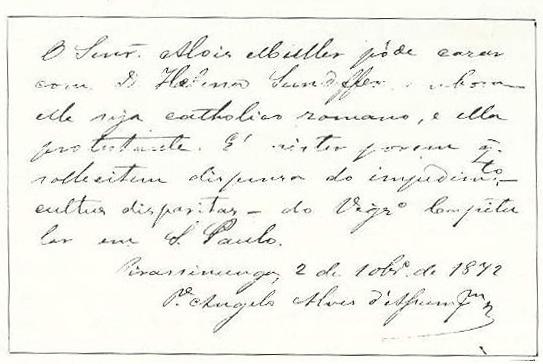 O Senr. Alois Müller póde casar
com D. Helena
elle seja catholico romano, e ella
protestante. E' mister porem q.
sollicitem dispensa do impedimto.
cultus disparitas - do Vigro. Capitu
lar em S. Paulo.
Pirassinunga, 2 de 10br. de 1872
Pe. Angelo Alves d'Assumpm